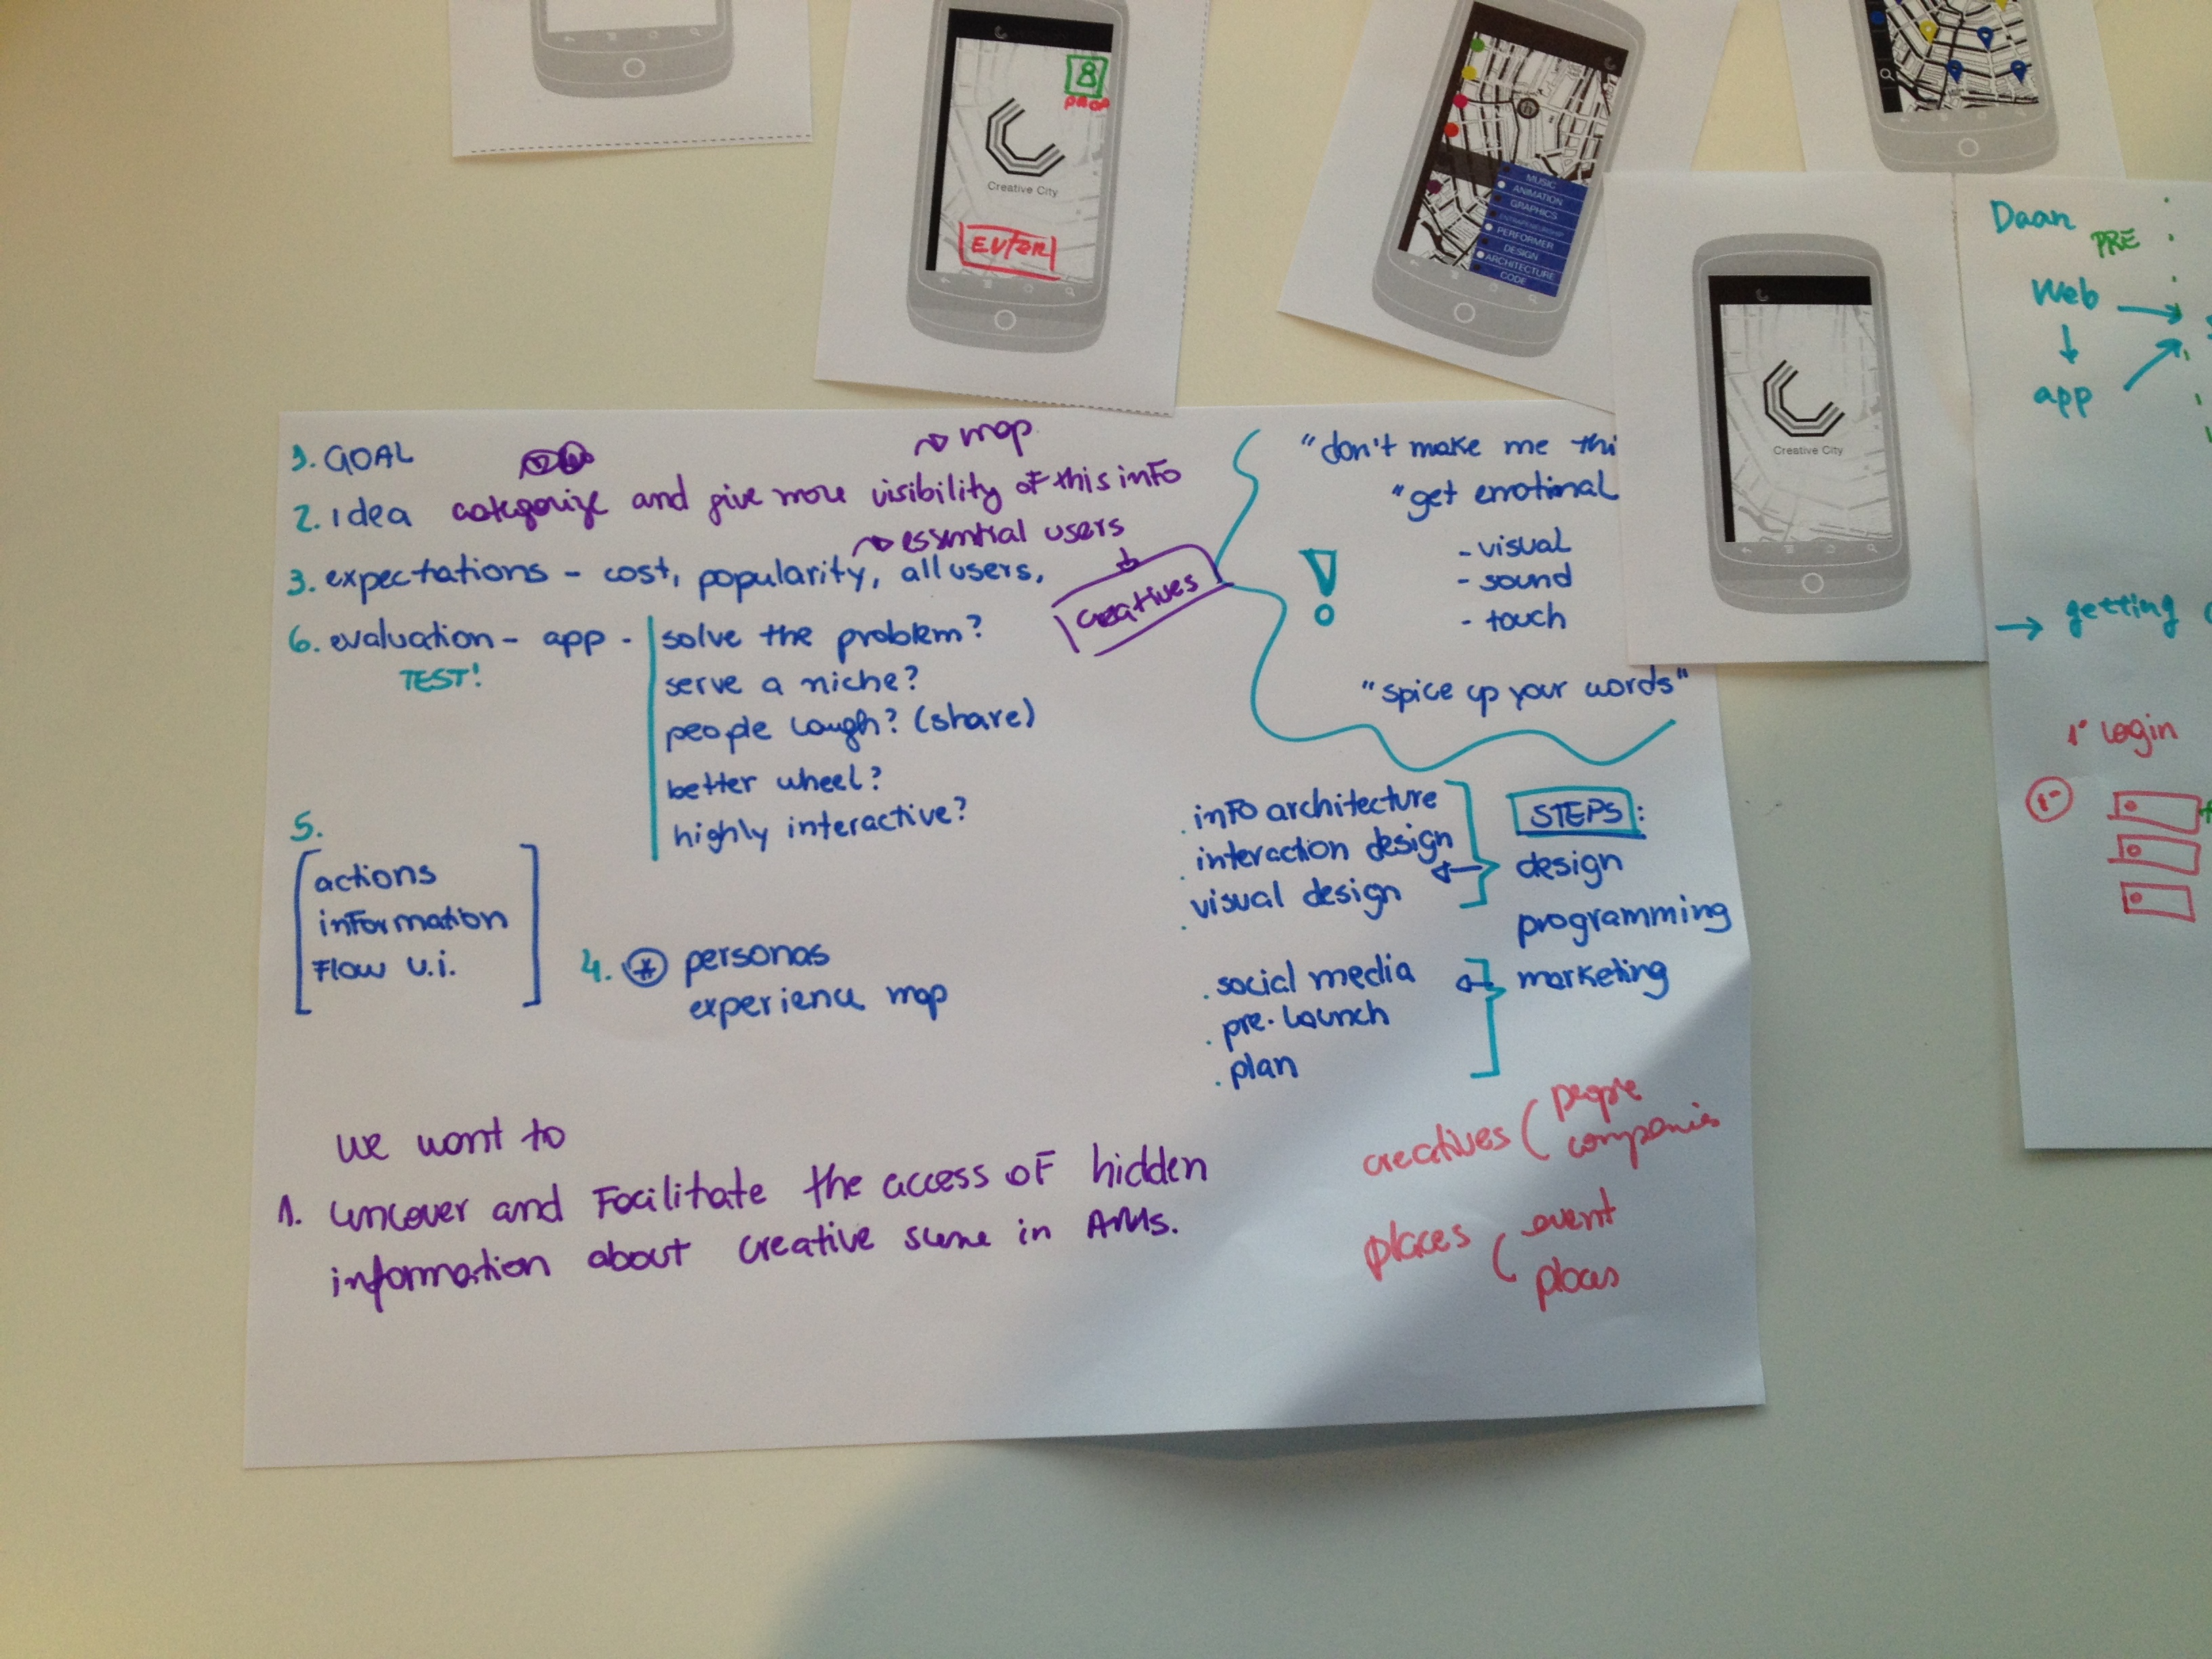 1. GOAL
2. idea categorize and give more visibility of this info
→ map
3. expectations - cost, popularity, all users,
→ essential users
creatives
6. evaluation - app - solve the problem?
TEST!
serve a niche?
people laugh? (share)
better wheel?
highly interactive?
5.
actions
information
Flow u.i.
4. * personas
experience map
we want to
1. uncover and Facilitate the access of hidden
information about creative scene in AMS.
"don't make me thi
"get emotional
!
- visual
- sound
- touch
"spice up your words"
STEPS:
. info architecture
. interaction design
. visual design
design
programming
. social media
. pre-launch
. plan
marketing
creatives ( people
companies
places ( event
places
8
Creative City
ENTER
MUSIC
ANIMATION
GRAPHICS
PERFORMER
DESIGN
ARCHITECTURE
CODE
Creative City
Daan
PRE
Web
↓
app
→ getting
1° login